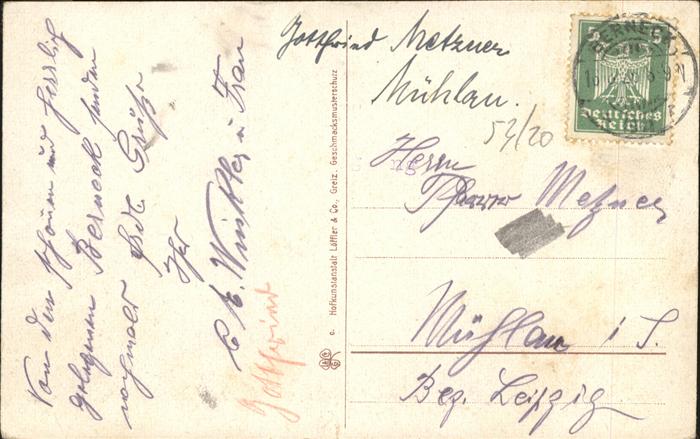 Von dem schönen und herrlich
gelegenen Berneck senden
nochmals Grüße
Ihr
Winkler u Frau
Gottfried
c. Hofkunstanstalt Löffler & Co., Greiz. Geschmacksmusterschutz
Gottfried Metzner
Mühlau.
54/20
Herrn
Pfarrer Metzner
Mühlau i S.
Bez. Leipzig
5
Deutsches
Reich
BERNECK